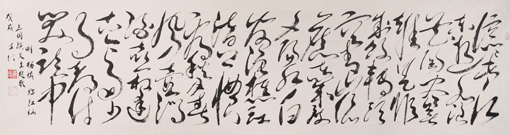 滚滚长江
东逝水浪
花淘尽英
雄是非成
败转头
空青山依
旧在几度
夕阳红白
发渔樵江
渚上惯
看秋月春
风一壶浊
酒喜相逢
古今多少
事都付
笑谈中
明杨慎临江仙
三国演义主题歌
戊戌